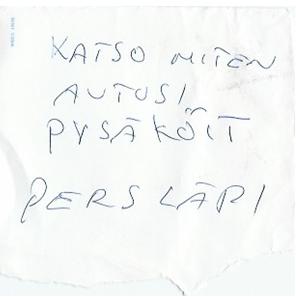 KATSO MITEN
AUTOSI
PYSÄKÖIT
PERSLÄPI